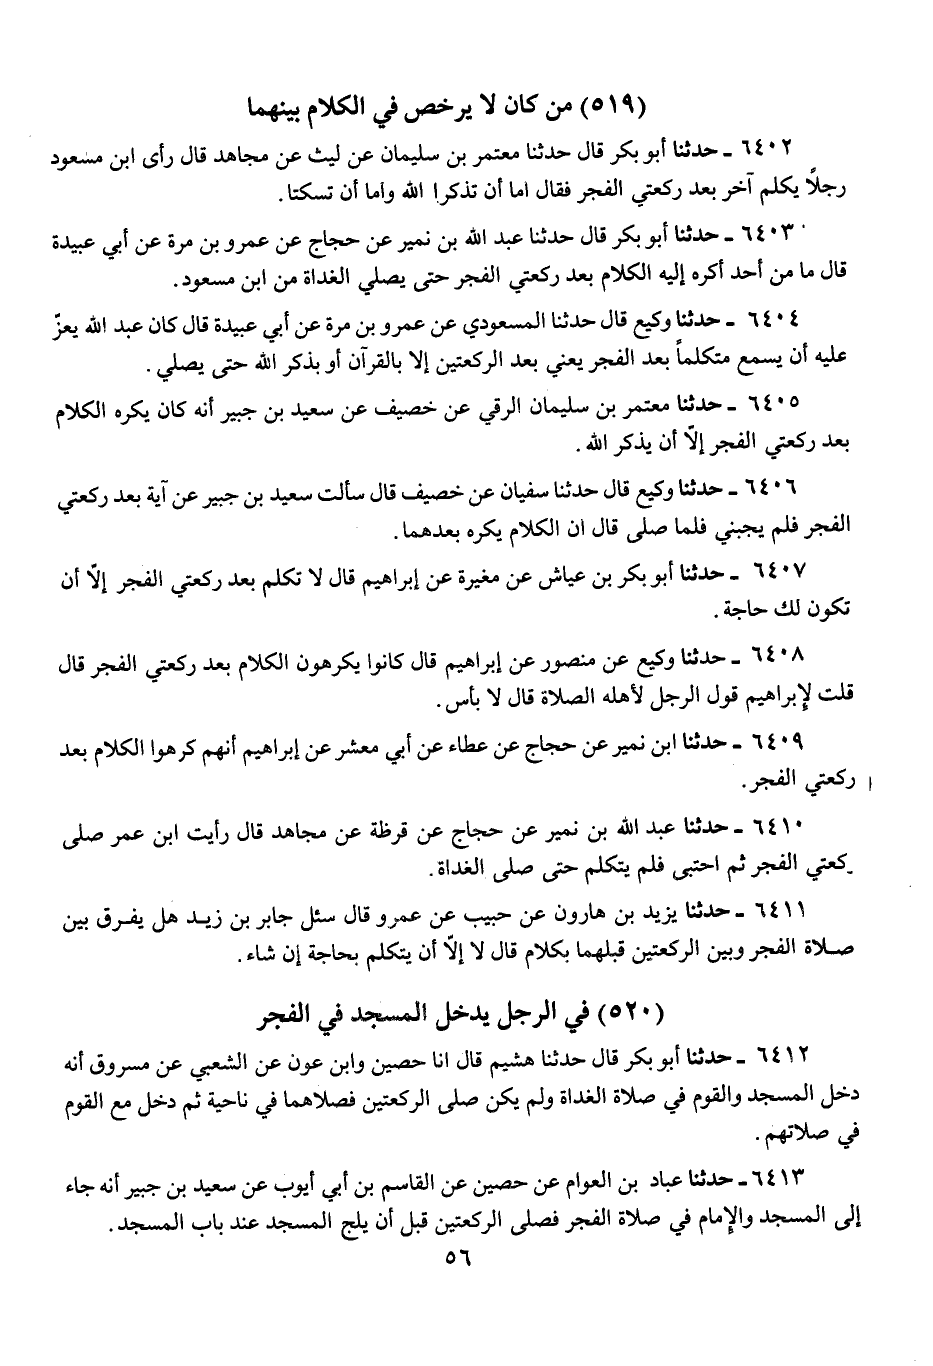 (٥١٩) من كان لا يرخص في الكلام بينهما
٦٤٠٢ ـ حدثنا أبو بكر قال حدثنا معتمر بن سليمان عن ليث عن مجاهد قال رأى ابن مسعود
رجلاً يكلم آخر بعد ركعتي الفجر فقال اما أن تذكرا الله واما أن تسكتا.
٦٤٠٣ ـ حدثنا أبو بكر قال حدثنا عبد الله بن نمير عن حجاج عن عمرو بن مرة عن أبي عبيدة
قال ما من أحد أكره إليه الكلام بعد ركعتي الفجر حتى يصلي الغداة من ابن مسعود.
٦٤٠٤ ـ حدثنا وكيع قال حدثنا المسعودي عن عمرو بن مرة عن أبي عبيدة قال كان عبد الله يعزّ
عليه أن يسمع متكلماً بعد الفجر يعني بعد الركعتين إلا بالقرآن أو بذكر الله حتى يصلي.
٦٤٠٥ ـ حدثنا معتمر بن سليمان الرقي عن خصيف عن سعيد بن جبير أنه كان يكره الكلام
بعد ركعتي الفجر إلّا أن يذكر الله.
٦٤٠٦ ـ حدثنا وكيع قال حدثنا سفيان عن خصيف قال سألت سعيد بن جبير عن آية بعد ركعتي
الفجر فلم يجبني فلما صلى قال ان الكلام يكره بعدهما.
٦٤٠٧ ـ حدثنا أبو بكر بن عياش عن مغيرة عن إبراهيم قال لا تكلم بعد ركعتي الفجر إلّا أن
تكون لك حاجة.
٦٤٠٨ ـ حدثنا وكيع عن منصور عن إبراهيم قال كانوا يكرهون الكلام بعد ركعتي الفجر قال
قلت لإبراهيم قول الرجل لأهله الصلاة قال لا بأس.
٦٤٠٩ ـ حدثنا ابن نمير عن حجاج عن عطاء عن أبي معشر عن إبراهيم أنهم كرهوا الكلام بعد
ركعتي الفجر.
٦٤١٠ ـ حدثنا عبد الله بن نمير عن حجاج عن قرظة عن مجاهد قال رأيت ابن عمر صلى
ركعتي الفجر ثم احتبى فلم يتكلم حتى صلى الغداة.
٦٤١١ ـ حدثنا يزيد بن هارون عن حبيب عن عمرو قال سئل جابر بن زيد هل يفرق بين
صلاة الفجر وبين الركعتين قبلهما بكلام قال لا إلّا أن يتكلم بحاجة إن شاء.
(٥٢٠) في الرجل يدخل المسجد في الفجر
٦٤١٢ ـ حدثنا أبو بكر قال حدثنا هشيم قال انا حصين وابن عون عن الشعبي عن مسروق أنه
دخل المسجد والقوم في صلاة الغداة ولم يكن صلى الركعتين فصلاهما في ناحية ثم دخل مع القوم
في صلاتهم.
٦٤١٣ ـ حدثنا عباد بن العوام عن حصين عن القاسم بن أبي أيوب عن سعيد بن جبير أنه جاء
إلى المسجد والإمام في صلاة الفجر فصلى الركعتين قبل أن يلج المسجد عند باب المسجد.
٥٦